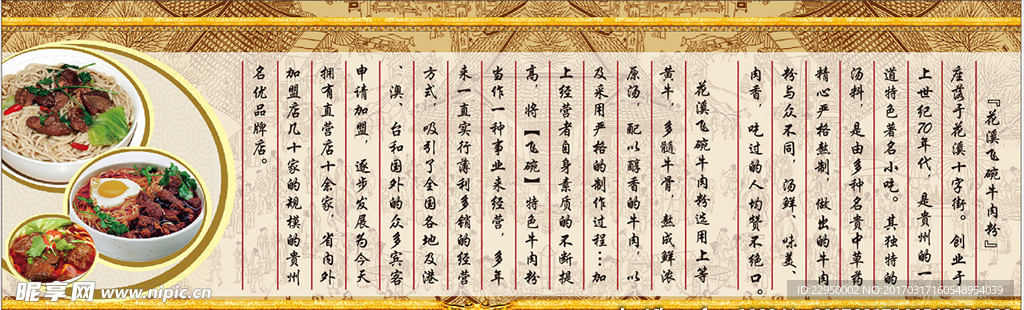 『花溪飞碗牛肉粉』
座落于花溪十字街。创业于
上世纪70年代，是贵州的一
道特色著名小吃。其独特的
汤料，是由多种名贵中草药
精心严格熬制，做出的牛肉
粉与众不同，汤鲜、味美、
肉香，吃过的人均赞不绝口。
花溪飞碗牛肉粉选用上等
黄牛，多髓牛骨，熬成鲜浓
原汤，配以醇香的牛肉，以
及采用严格的制作过程…加
上经营者自身素质的不断提
高，将【飞碗】特色牛肉粉
当作一种事业来经营，多年
来一直实行薄利多销的经营
方式，吸引了全国各地及港
、澳、台和国外的众多宾客
申请加盟，逐步发展为今天
拥有直营店十余家，省内外
加盟店几十家的规模的贵州
名优品牌店。
昵享网 www.nipic.cn
ID:22950002 NO:20170317160548954039